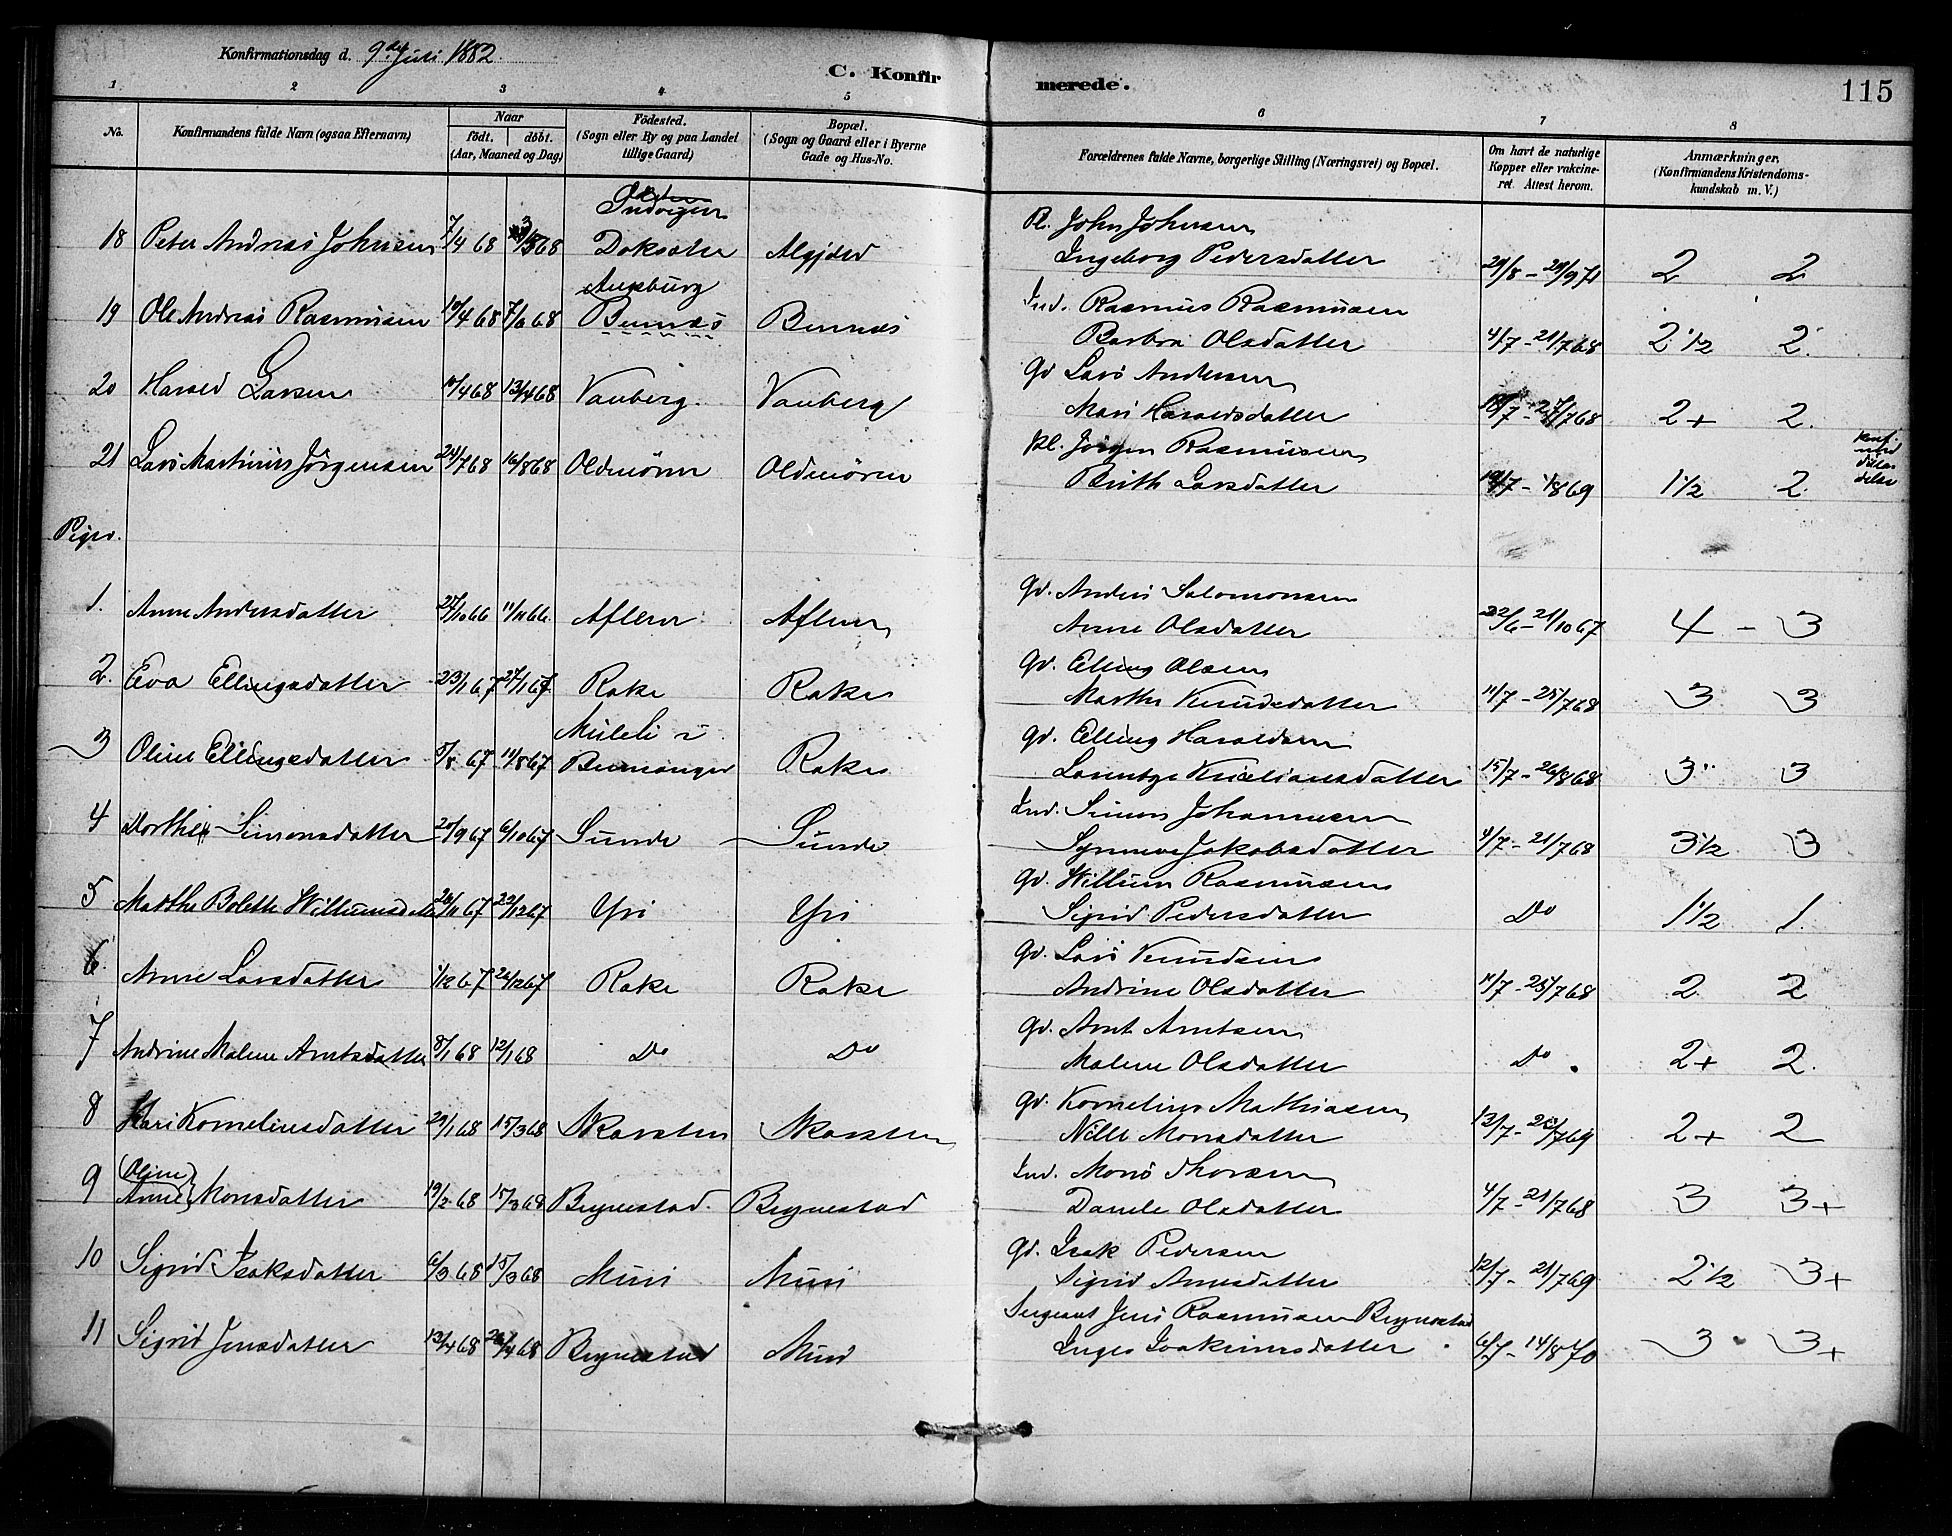 Konfirmationsdag d. 9de Juli 1882.
C. Konfirmerede.
115
1 2 3 4 5 6 7 8
No. Konfirmandens fulde Navn (ogsaa Efternavn) Naar födt. döbt. (Aar, Maaned og Dag) Födested. (Sogn eller By og paa Landet tillige Gaard) Bopæl. (Sogn og Gaard eller i Byerne Gade og Hus-No. Forældrenes fulde Navne, borgerlige Stilling (Næringsvei) og Bopæl. Om havt de naturlige Kopper eller vakcineret. Attest herom. Anmærkninger. (Konfirmandens Kristendomskundskab m. V.)
Pl. John Johnsen
18 Peter Andreas Johnsen 7/4 68 3/5 68 Ingeborg Pedersdatter 29/8 - 29/9 71 2 2
19 Ole Andreas Rasmussen 10/4 68 7/6 68 Bennæs Bennæs Ind. Rasmus Rasmussen
Barbra Olsdatter 4/7 - 21/7 68 2 1/2 2.
20 Harald Larsen 10/4 68 13/4 68 Vanberg. Vanberg Gd Lars Andersen
Mari Haraldsdatter 27/7 68 2+ 2.
21 Lars Martinus Jörgensen 24/7 68 16/8 68 Oldmören Oldmören Pl. Jörgen Rasmussen
Brith Larsdatter 19/7 - 1/8 69 1 1/2 2
Piger.
1. Anne Andersdatter 27/10 66 11/11 66. Aflem Aflem Gd. Anders Salomonsen
Anne Olsdatter 22/6 - 21/10 67 4 - 3
2. Eva Ellingsdatter 23/1 67 27/1 67 Rake Rake Gd. Elling Olsen
Marthe Knudsdatter 11/7 - 25/7 68 3 3
3 Oline Ellingsdatter 5/8 67 11/8 67 Muleli i Bremanger Rake Gd. Elling Haraldsen
Lorentze Kristiansdatter 15/7 - 26/8 68 3 3
4 Dorthe Simonsdatter 20/9 67 6/10 67 Sunde Sunde Ind. Simon Johannesen
Synneve Jakobsdatter 4/7 - 21/7 68 3 1/2 3
5 Marthe Bolette Willumsdatter 24/11 67 22/12 67 Yri Yri Gd. Willum Rasmussen
Sigrid Pedersdatter Do 1 1/2 1.
6. Anne Larsdatter 1/12 67 26/12 67 Rake Rake Gd. Lars Knudsen
Andrine Olsdatter 11/7 - 25/7 68 2. 2
7 Andrine Malene Arntsdatter 8/1 68 12/1 68 Do Do Gd. Arnt Arntsen
Malene Olsdatter Do. 2+ 2.
8 Kari Kornelius­datter 29/1 68 15/3 68 Skarsten Skarsten Gd. Kornelius Mathiasen
Nille Monsdatter 12/7 - 7 69 2+ 2
9 (Oline) Anne Monsdatter 19/2 68 15/3 68 Brynestad. Brynestad Ind. Mons Thorsen
Danele Olsdatter 4/7 - 21/7 68 3 3+
10 Sigrid Isaksdatter 6/3 68 15/3 68 Muri Muri Gd. Isak Pedersen
Sigrid Arnesdatter 12/7 - 21/7 69 2 1/2 3+
11 Sigrid Jensdatter 13/4 68 26/4 68 Brynestad Muri Sergeant Jens Rasmussen Brynestad
Inger Joakimsdatter. 6/7 - 14/8 70 3 3+